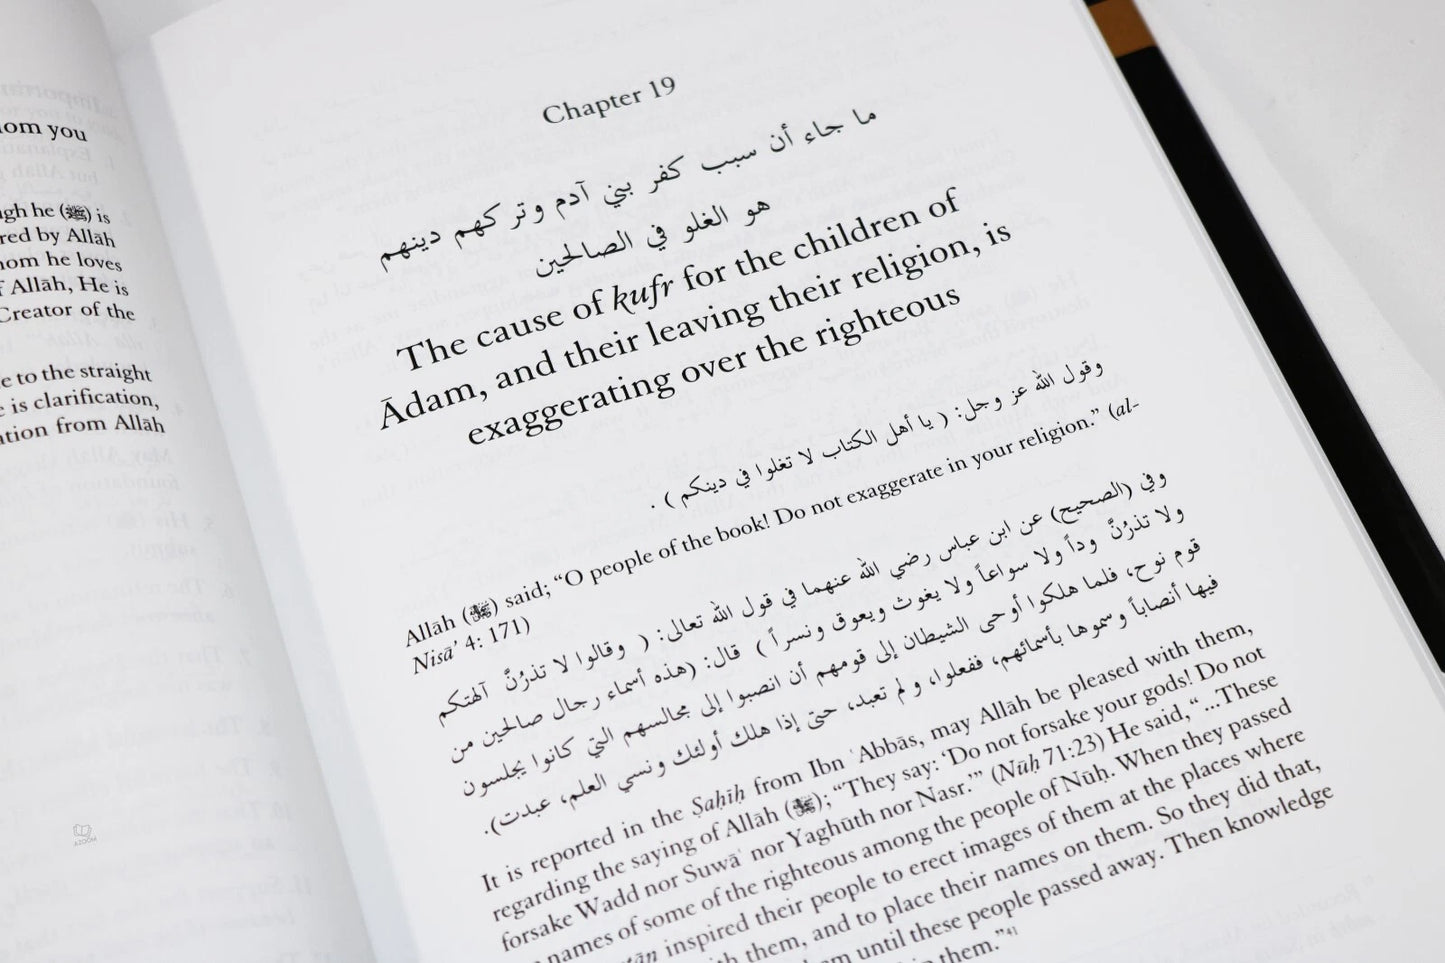 nom you
gh he (ﷺ) is
red by Allāh
nom he loves
f Allāh, He is
Creator of the
e to the straight
e is clarification,
ation from Allāh
Chapter 19
ما جاء أن سبب كفر بني آدم وتركهم دينهم
هو الغلو في الصالحين
The cause of kufr for the children of
Ādam, and their leaving their religion, is
exaggerating over the righteous
وقول الله عز وجل: ( يا أهل الكتاب لا تغلوا في دينكم ) .
Allāh (ﷻ) said; “O people of the book! Do not exaggerate in your religion.” (al-
Nisā’ 4: 171)
وفي (الصحيح) عن ابن عباس رضي الله عنهما في قول الله تعالى: ( وقالوا لا تذرُنَّ آلهتكم
ولا تذرُنَّ وداً ولا سواعاً ولا يغوث ويعوق ونسراً ) قال: (هذه أسماء رجال صالحين من
قوم نوح، فلما هلكوا أوحى الشيطان إلى قومهم أن انصبوا إلى مجالسهم التي كانوا يجلسون
فيها أنصاباً وسموها بأسمائهم، ففعلوا، ولم تعبد، حتى إذا هلك أولئك ونسي العلم، عبدت).
It is reported in the Ṣaḥīḥ from Ibn ʿAbbās, may Allāh be pleased with them,
regarding the saying of Allāh (ﷻ); “They say: ‘Do not forsake your gods! Do not
forsake Wadd nor Suwāʿ nor Yaghūth nor Nasr.’” (Nūḥ 71:23) He said,“ ...These
names of some of the righteous among the people of Nūḥ. When they passed
inspired their people to erect images of them at the places where
them, and to place their names on them. So they did that,
until these people passed away. Then knowledge
them.”⁴¹
AZOOM